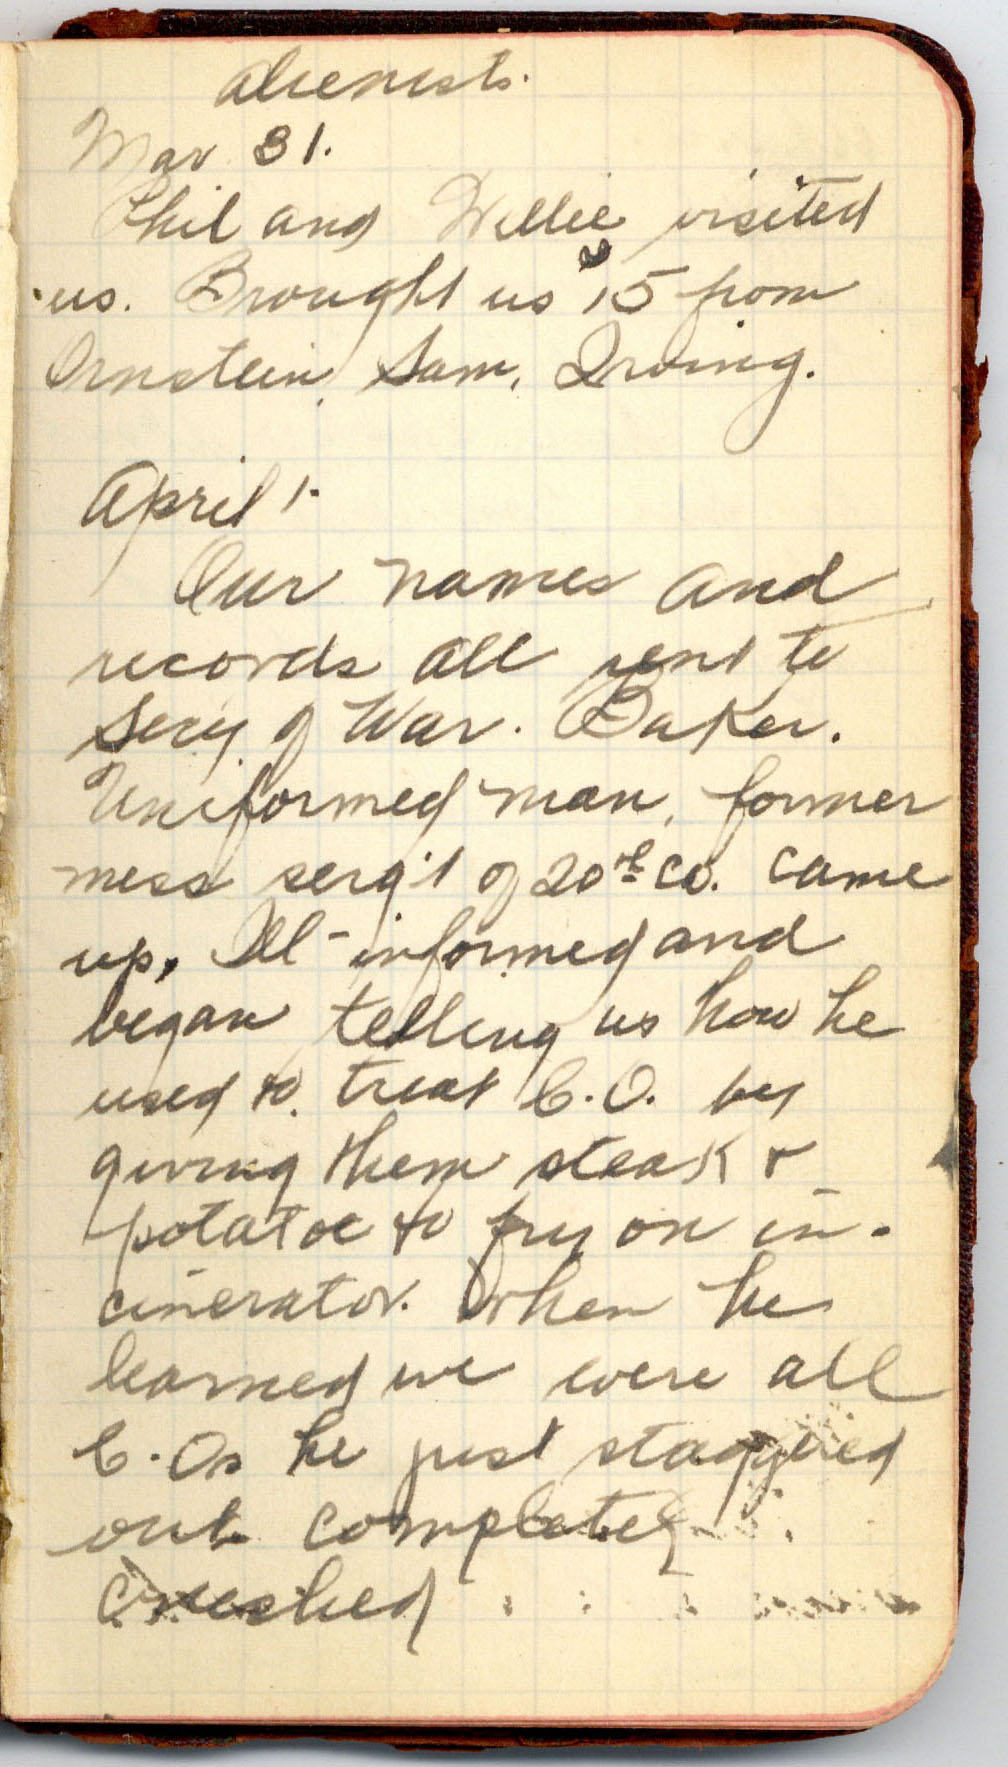 alienists.
Mar 31.
Phil and Willie visited
us. Brought us $15 from
Ornstein, Sam, Irving.
April 1.
Our names and
records all sent to
Secy of War. Baker.
Uniformed man, former
mess serg't of 20th Co. came
up, Ill-informed and
began telling us how he
used to treat C.O. by
giving them steak &
potatoe to fry on in-
cinerator. When he
learned we were all
C.Os he just staggered
out completely
crushed